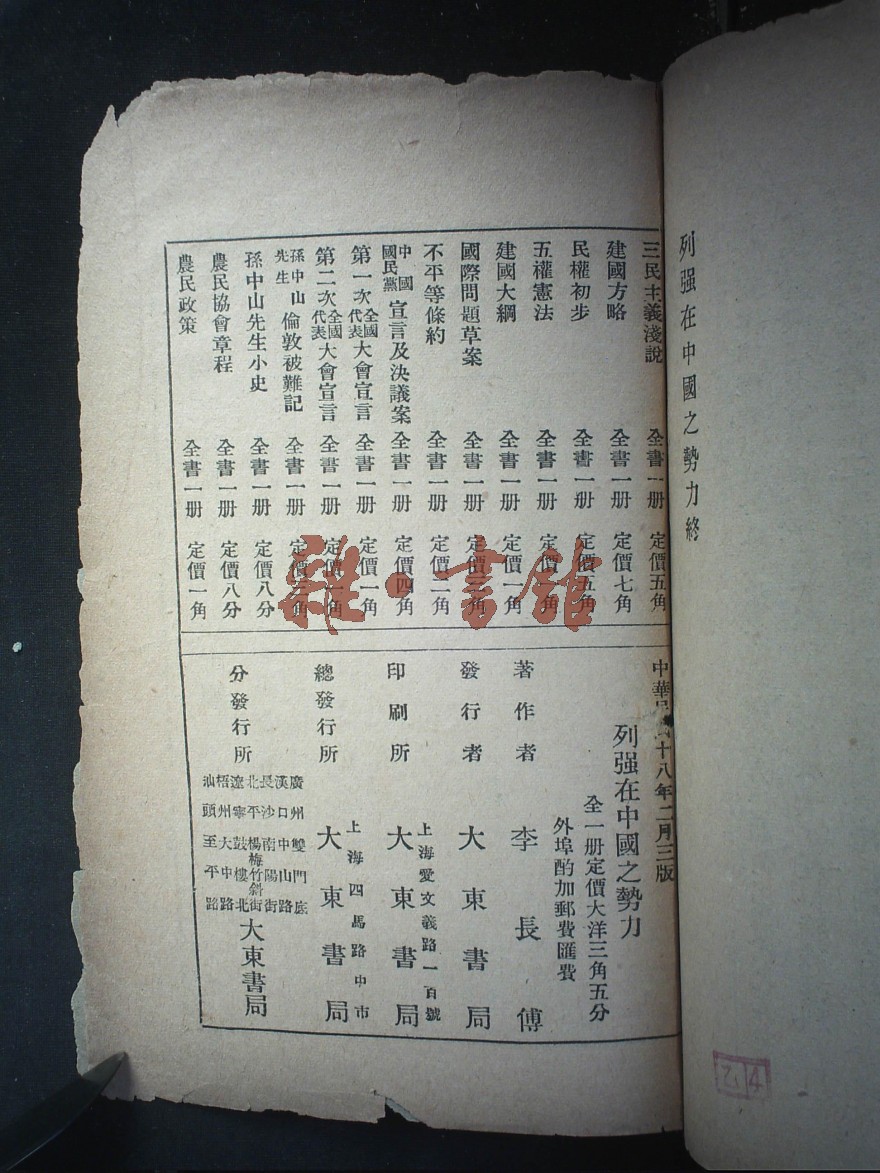 列强在中國之勢力終
三民主義淺說 全書一册 定價五角
建國方略 全書一册 定價七角
民權初步 全書一册 定價五角
五權憲法 全書一册 定價 角
建國大綱 全書一册 定價一角
國際問題草案 全書一册 定價 角
不平等條約 全書一册 定價二角
中國國民黨宣言及決議案 全書一册 定價四角
第一次全國代表大會宣言 全書一册 定價一角
第二次全國代表大會宣言 全書一册 定價 角
孫中山先生倫敦被難記 全書一册 定價 角
孫中山先生小史 全書一册 定價八分
農民協會章程 全書一册 定價八分
農民政策 全書一册 定價一角
中華 十八年二月三版
列强在中國之勢力
全一册定價大洋三角五分
外埠酌加郵費匯費
著作者 李長傅
發行者 大東書局
印刷所 上海愛文義路一百號 大東書局
總發行所 上海四馬路中市 大東書局
分發行所
廣州雙門底
漢口中山路
長沙南陽街
北平楊梅竹斜街
遼寧鼓樓北
梧州大中路
汕頭至平路
大東書局
雜·書館
乙4